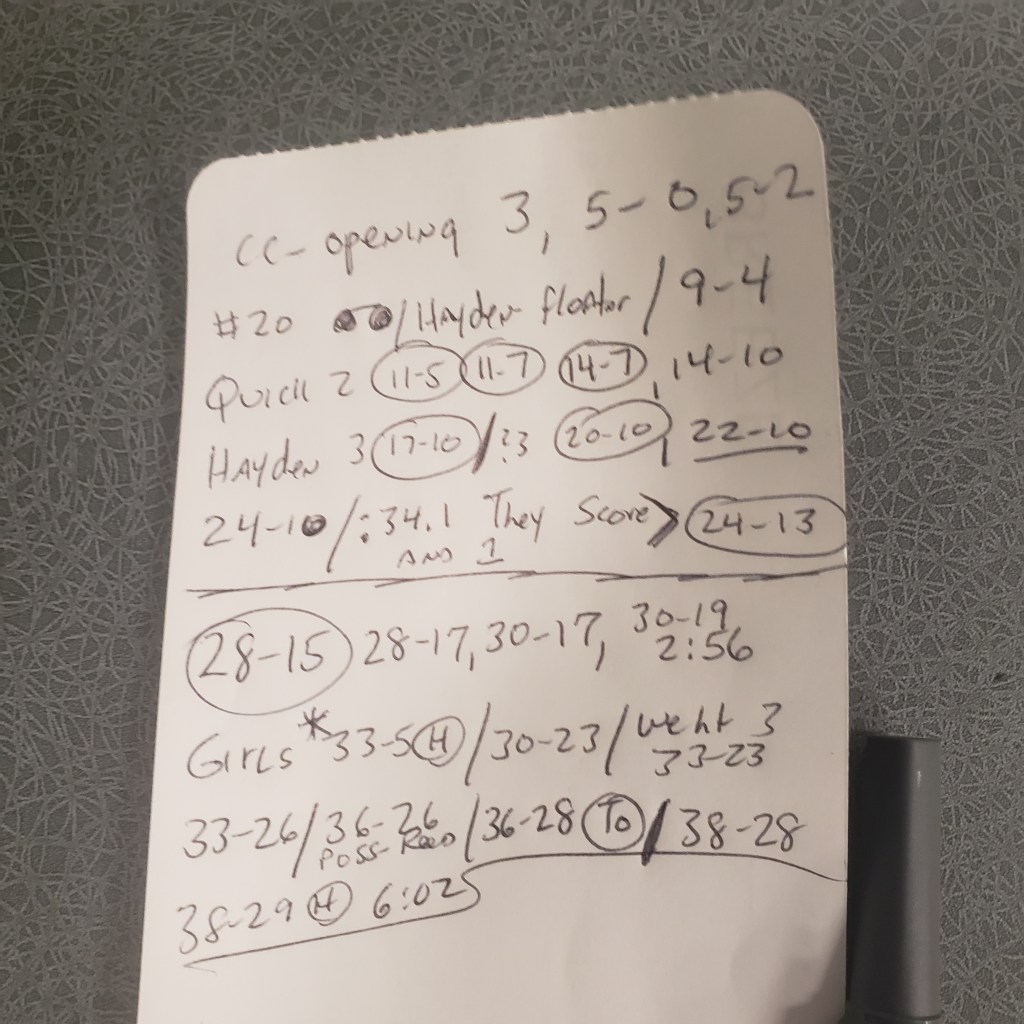 CC- opening 3, 5-0, 5-2
#20 /Hayden floator / 9-4
Quick 2 11-5 11-7 14-7, 14-10
Hayden 3 17-10 / :3 20-10, 22-10
24-10 /:34.1 They Score> 24-13
AND 1
28-15 28-17, 30-17, 30-19
2:56
Girls *33-5 H / 30-23 / went 3
33-23
33-26 / 36-26 / 36-28 To / 38-28
Poss-
38-29 H 6:02